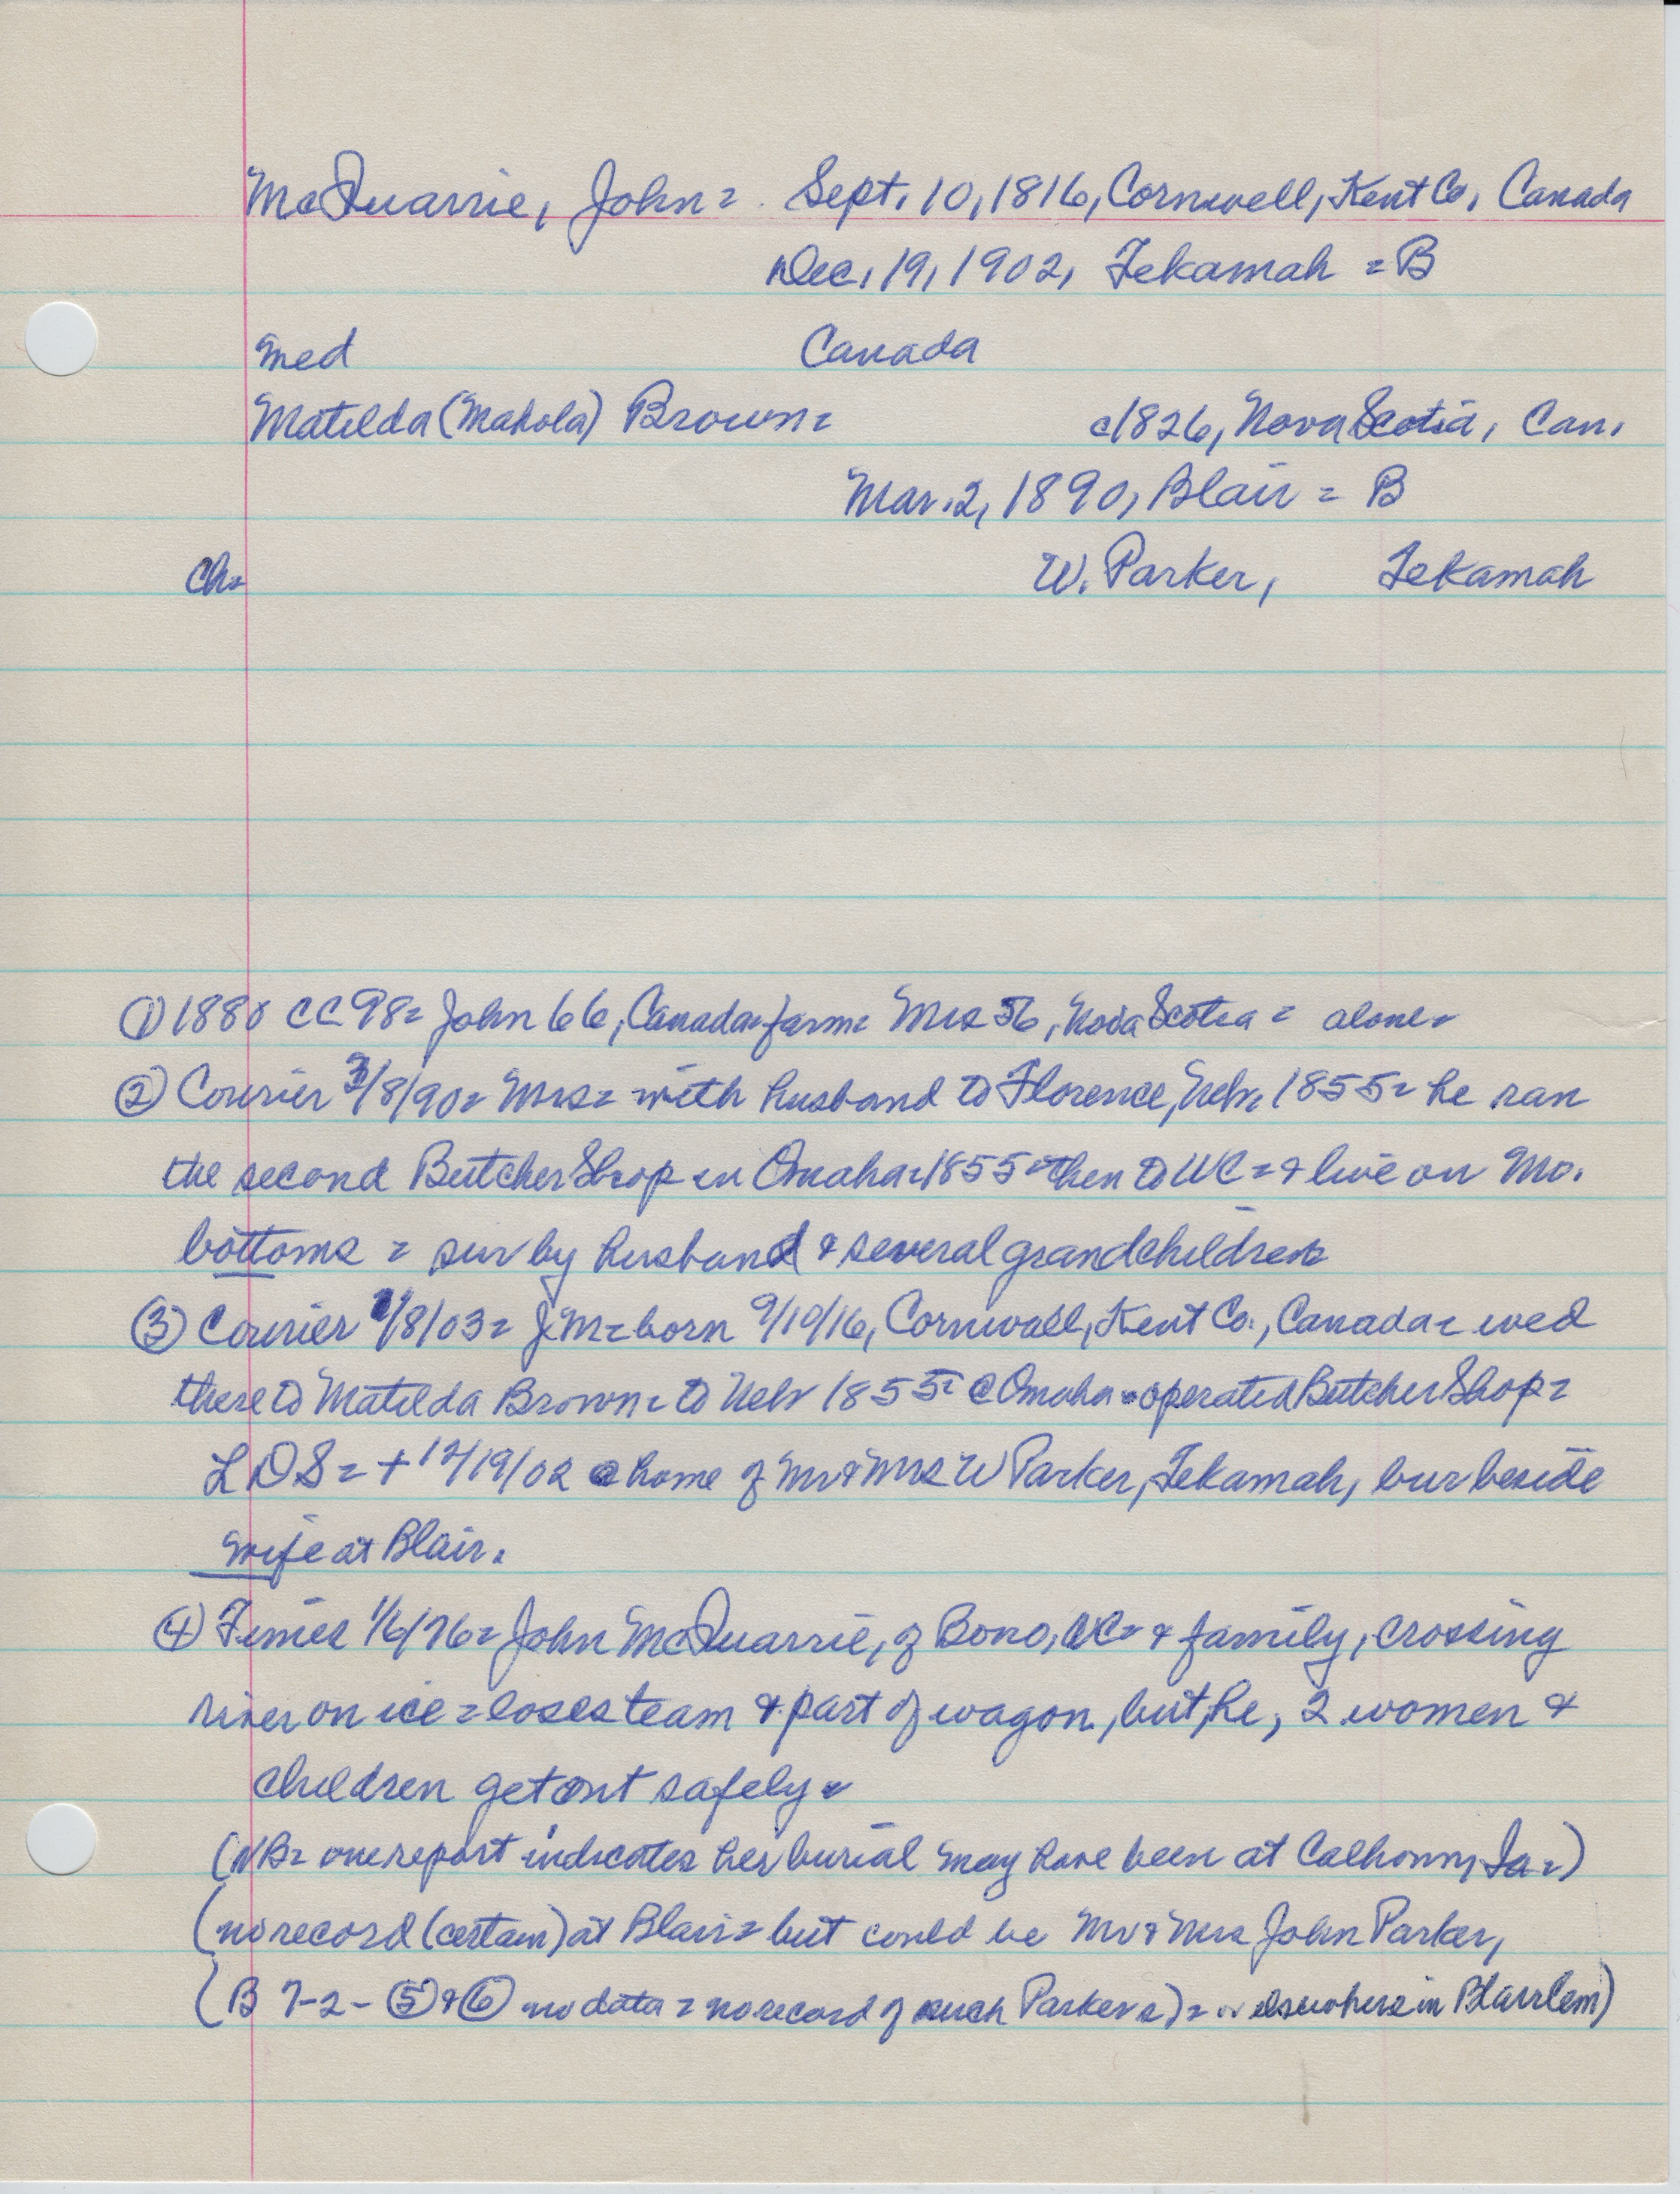 McQuarrie, John = Sept. 10, 1816, Cornwell, Kent Co, Canada
Dec. 19, 1902, Tekamah = B
med Canada
Matilda (Mahola) Brown = c1826, Nova Scotia, Can.
Mar. 2, 1890, Blair = B
Ch= W. Parker, Tekamah
① 1880 CC 98 = John 66, Canada = farm = Mrs 56, Nova Scotia = alone =
② Courier 3/8/90 = Mrs = with husband to Florence, Neb. 1855 = he ran
the second Butcher Shop in Omaha = 1855 = then to WC = & live on Mo.
bottoms = sur by husband & several grandchildren
③ Courier 1/8/03 = J.M = born 9/10/16, Cornwall, Kent Co., Canada = wed
there to Matilda Brown = to Neb 1855 = @ Omaha = operated Butcher Shop =
LDS = + 12/19/02 @ home of Mr & Mrs W Parker, Tekamah, bur beside
wife at Blair.
④ Times 1/6/76 = John McQuarrie, of Bono, WC = & family, crossing
river on ice = loses team & part of wagon, but he, 2 women &
children get out safely =
(NB = one report indicates her burial may have been at Calhoun, Ia =)
(no record (certain) at Blair = but could be Mr & Mrs John Parker,
(B 7-2-⑤ & ⑥ no data = no record of such Parkers) = or elsewhere in Blair Cem)